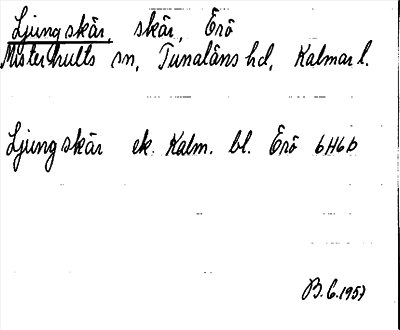 Ljungskär, skär, Erö
Misterhults sn, Tunaläns hd, Kalmar l.
Ljungskär ek. Kalm. bl. Erö 6H6b
B.C.1957